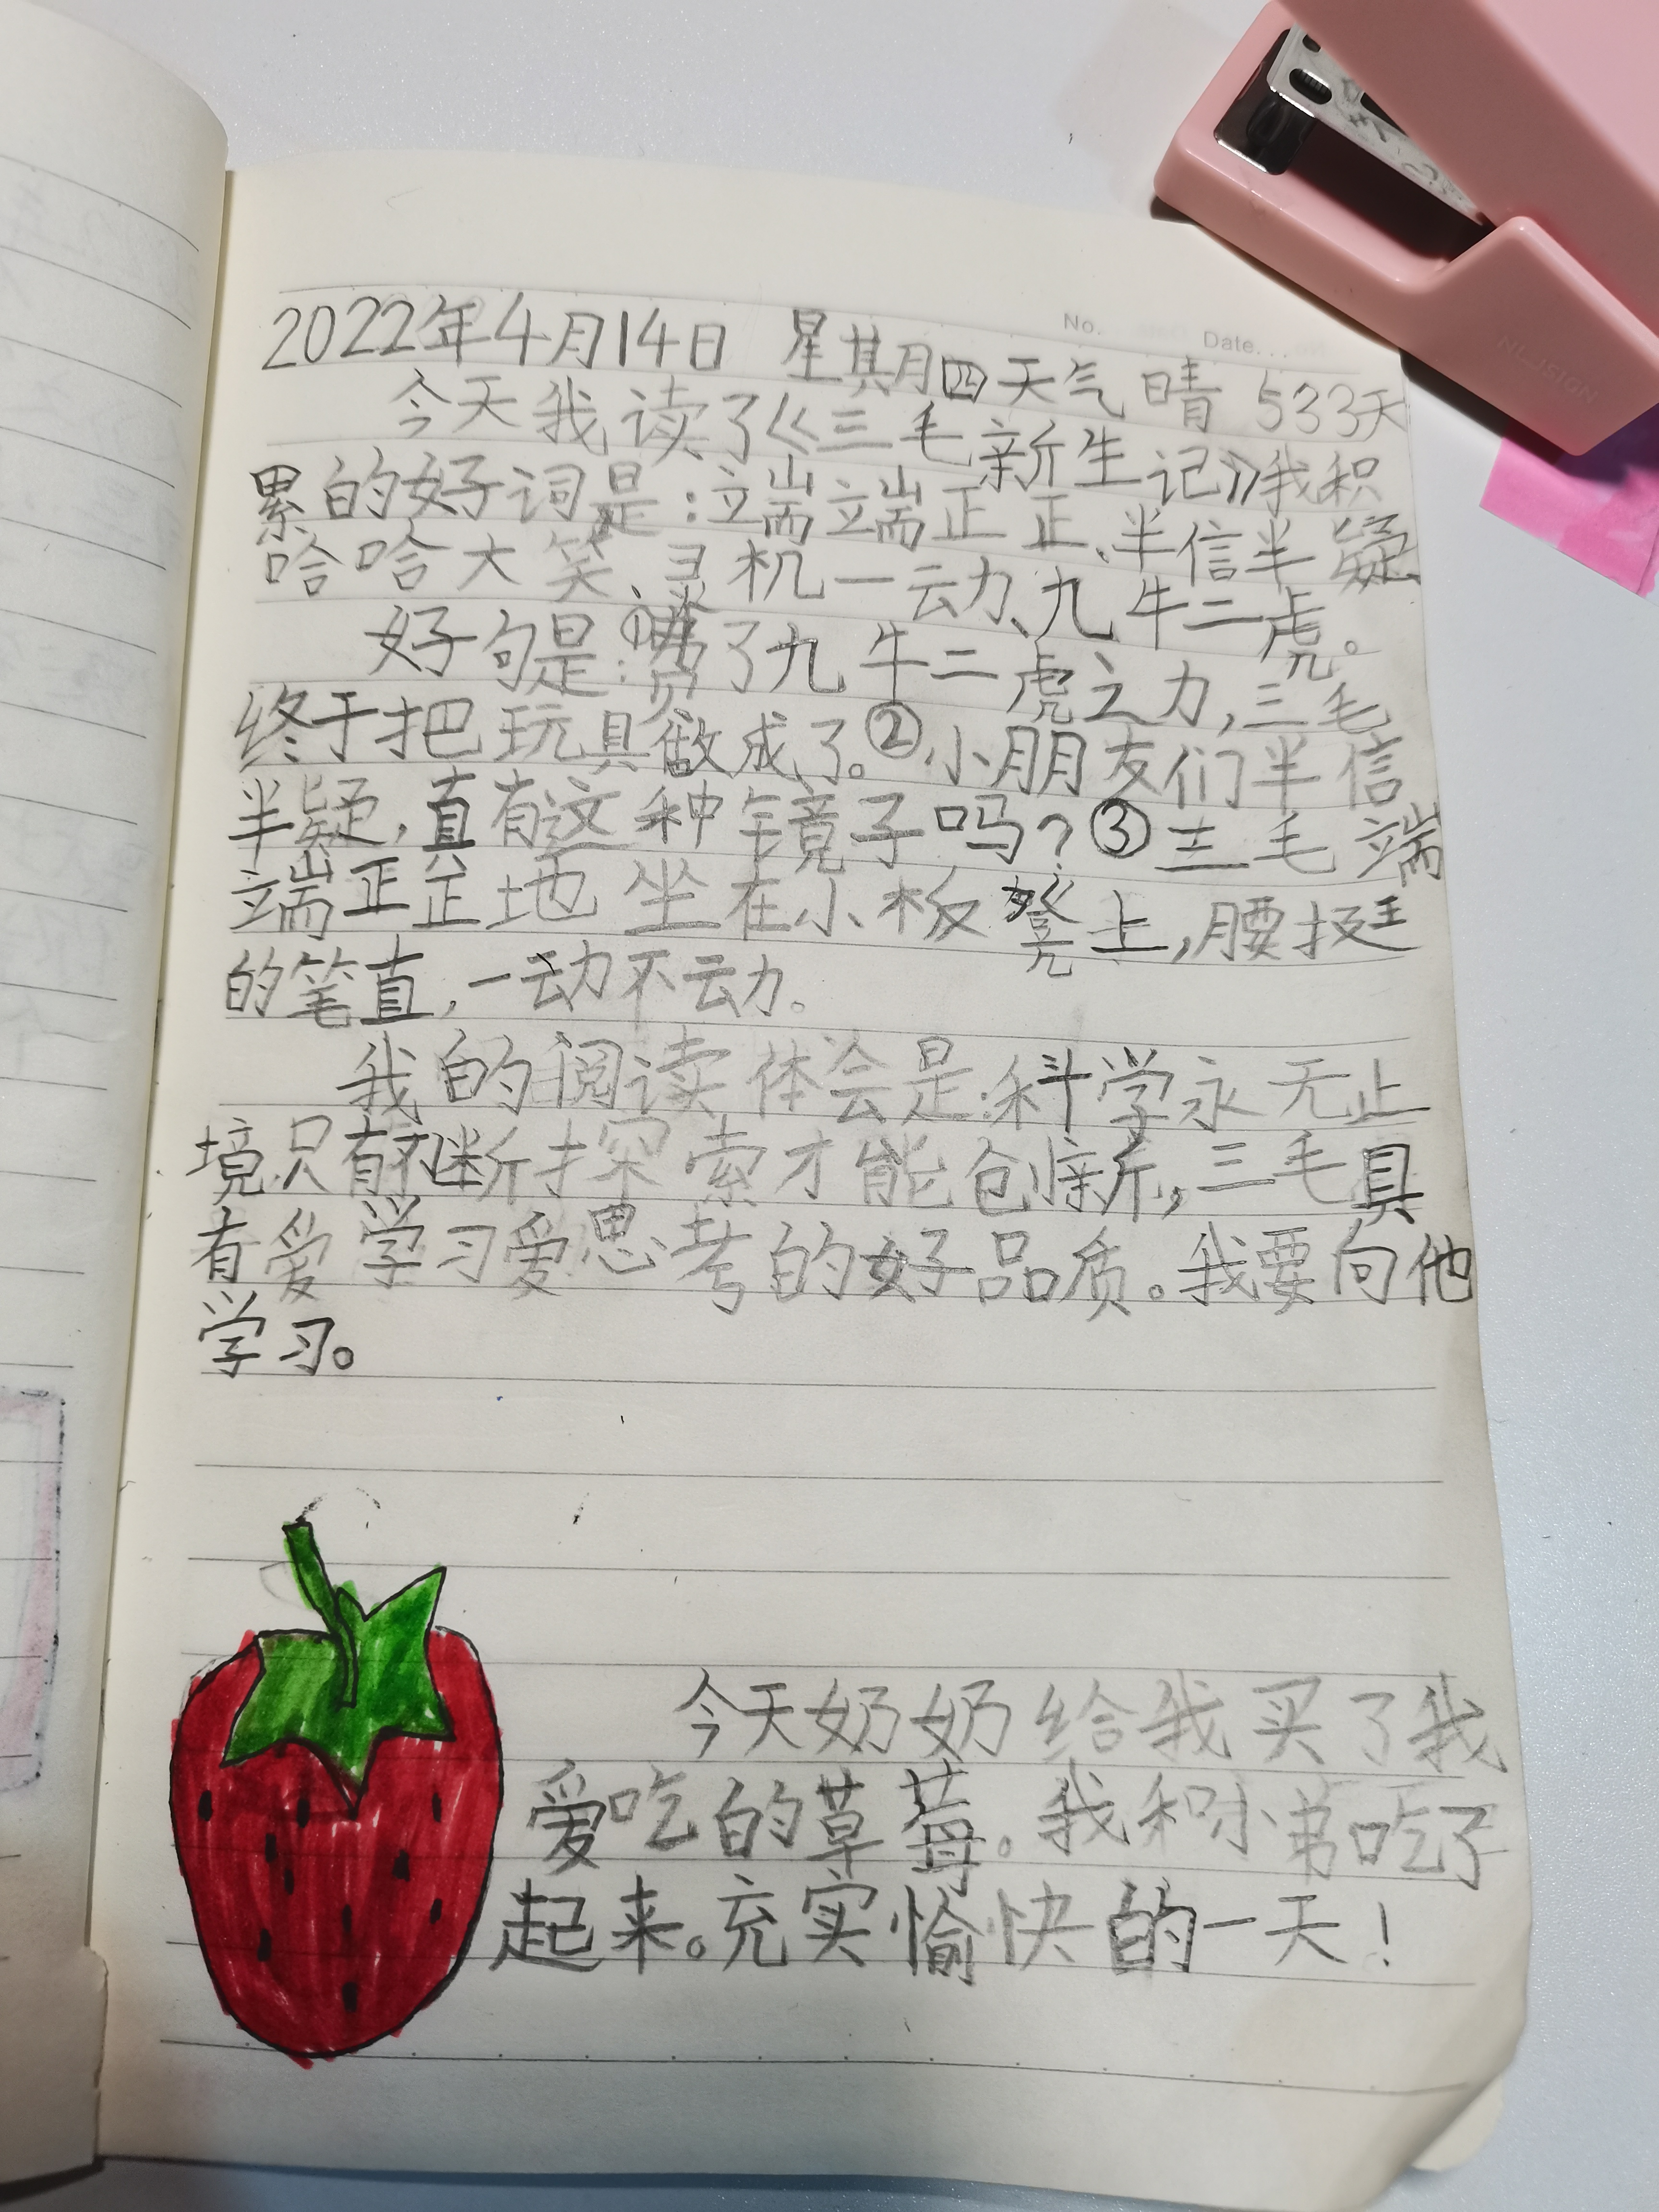 No. Date...
2022年4月14日 星期四天气 晴 533天
今天我读了《三毛新生记》我积
累的好词是:端端正正、半信半疑
哈哈大笑、灵机一动、九牛二虎。
好句是:①费了九牛二虎之力,三毛
终于把玩具做成了。②小朋友们半信
半疑,真有这种镜子吗?③三毛端
端正正地坐在小板凳上,腰挺
的笔直,一动不动。
我的阅读体会是:科学永无止
境只有不断探索才能创新,三毛具
有爱学习爱思考的好品质。我要向他
学习。
今天奶奶给我买了我
爱吃的草莓。我和小弟吃了
起来。充实愉快的一天!
NUSIGN